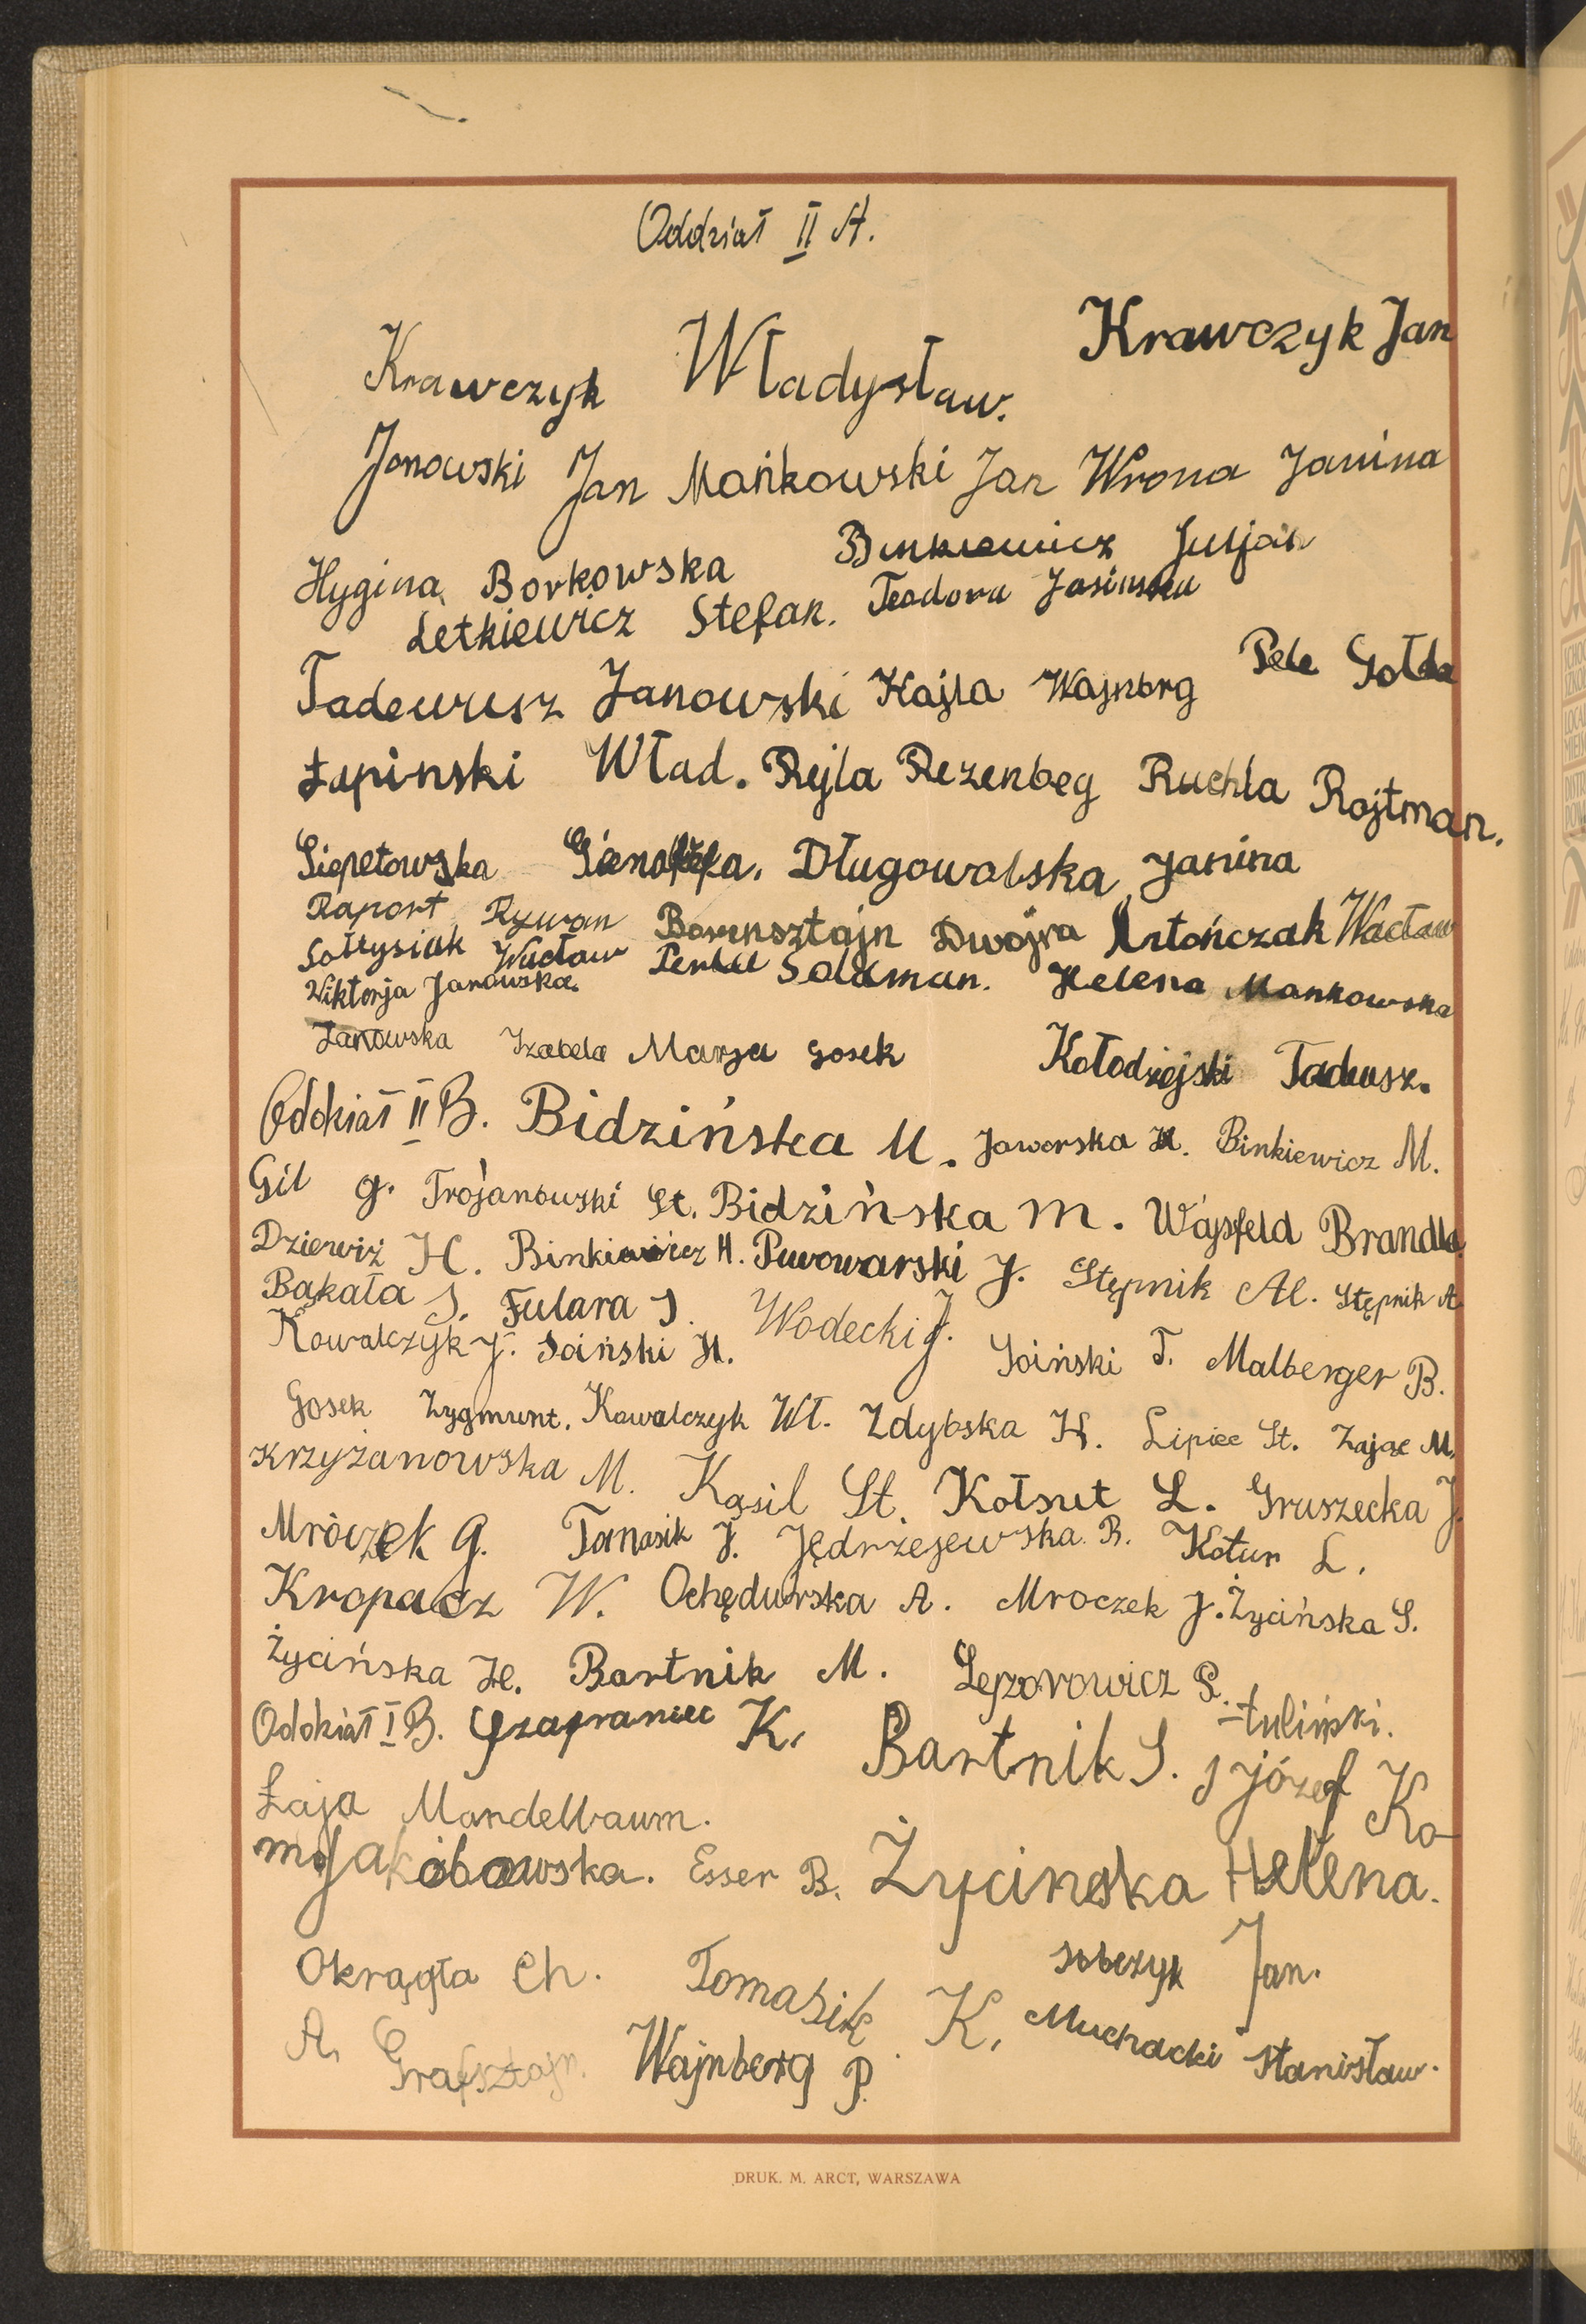 Oddział II A.
Krawczyk Władysław. Krawczyk Jan
Janowski Jan Mańkowski Jan Wrona Janina
Hygina Borkowska Binkiewicz Juljan
Letkiewicz Stefan. Teodora Jasinska
Tadeuusz Janowski Kajla Wajnbrg Pele Gołda
Łapinski Wład. Rejla Rezenbeg Ruchla Rojtman.
Siepetowska Długowolska Janina
Raport Rywan Borensztajn Dwojra Antończak Wacław
Sołtysiak Wacław Perla Soldman. Helena Mankowska
Wiktorja Janowska.
Janowska Izabela Marja Gosek Kołodziejski Tadeusz.
Oddział II B. Bidzińska M. Jaworska H. Binkiewicz M.
Gil G. Trojanowski St. Bidzińska M. Wajsfeld Brandla
Dzierwiż H. Binkiewicz H. Puwowarski J. Stępnik Al. Stępnik A
Bąkała J. Fulara J. Wodecki J.
Kowalczyk J. Soiński H. Soiński T. Malberger B.
Gosek Zygmunt. Kowalczyk Wł. Zdybska H. Lipiec St. Zając M.
Krzyżanowska M. Kąsil St. Kołsut L. Gruszecka J.
Mròczek G. Tomasik J. Jędrzejewska R. Kotur L.
Kropacz W. Ochędurska A. Mroczek J. Życińska S.
Życińska H. Bartnik M. Lejzorowicz P.
Oddział I B. Czapraniec K. Bartnik S. -tuliński.
Łaja Mandelbaum. Józef Ko-
m. Jakóbowska. Esser B. Życinska Helena.
Okrągła Ch. Tomasik K. Sobczyk Jan.
A. Grafsztajn. Wajnberg P. Muchacki Stanisław.
DRUK. M. ARCT, WARSZAWA